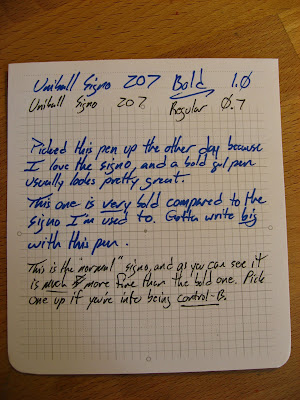 Uniball Signo 207 Bold 1.0
Uniball Signo 207 Regular 0.7
Picked this pen up the other day because
I love the signo, and a bold gel pen
usually looks pretty great.
This one is very bold compared to the
signo I'm used to. Gotta write big
with this pen.
This is the "normal" signo, and as you can see it
is much more fine than the bold one. Pick
one up if you're into being control-B.